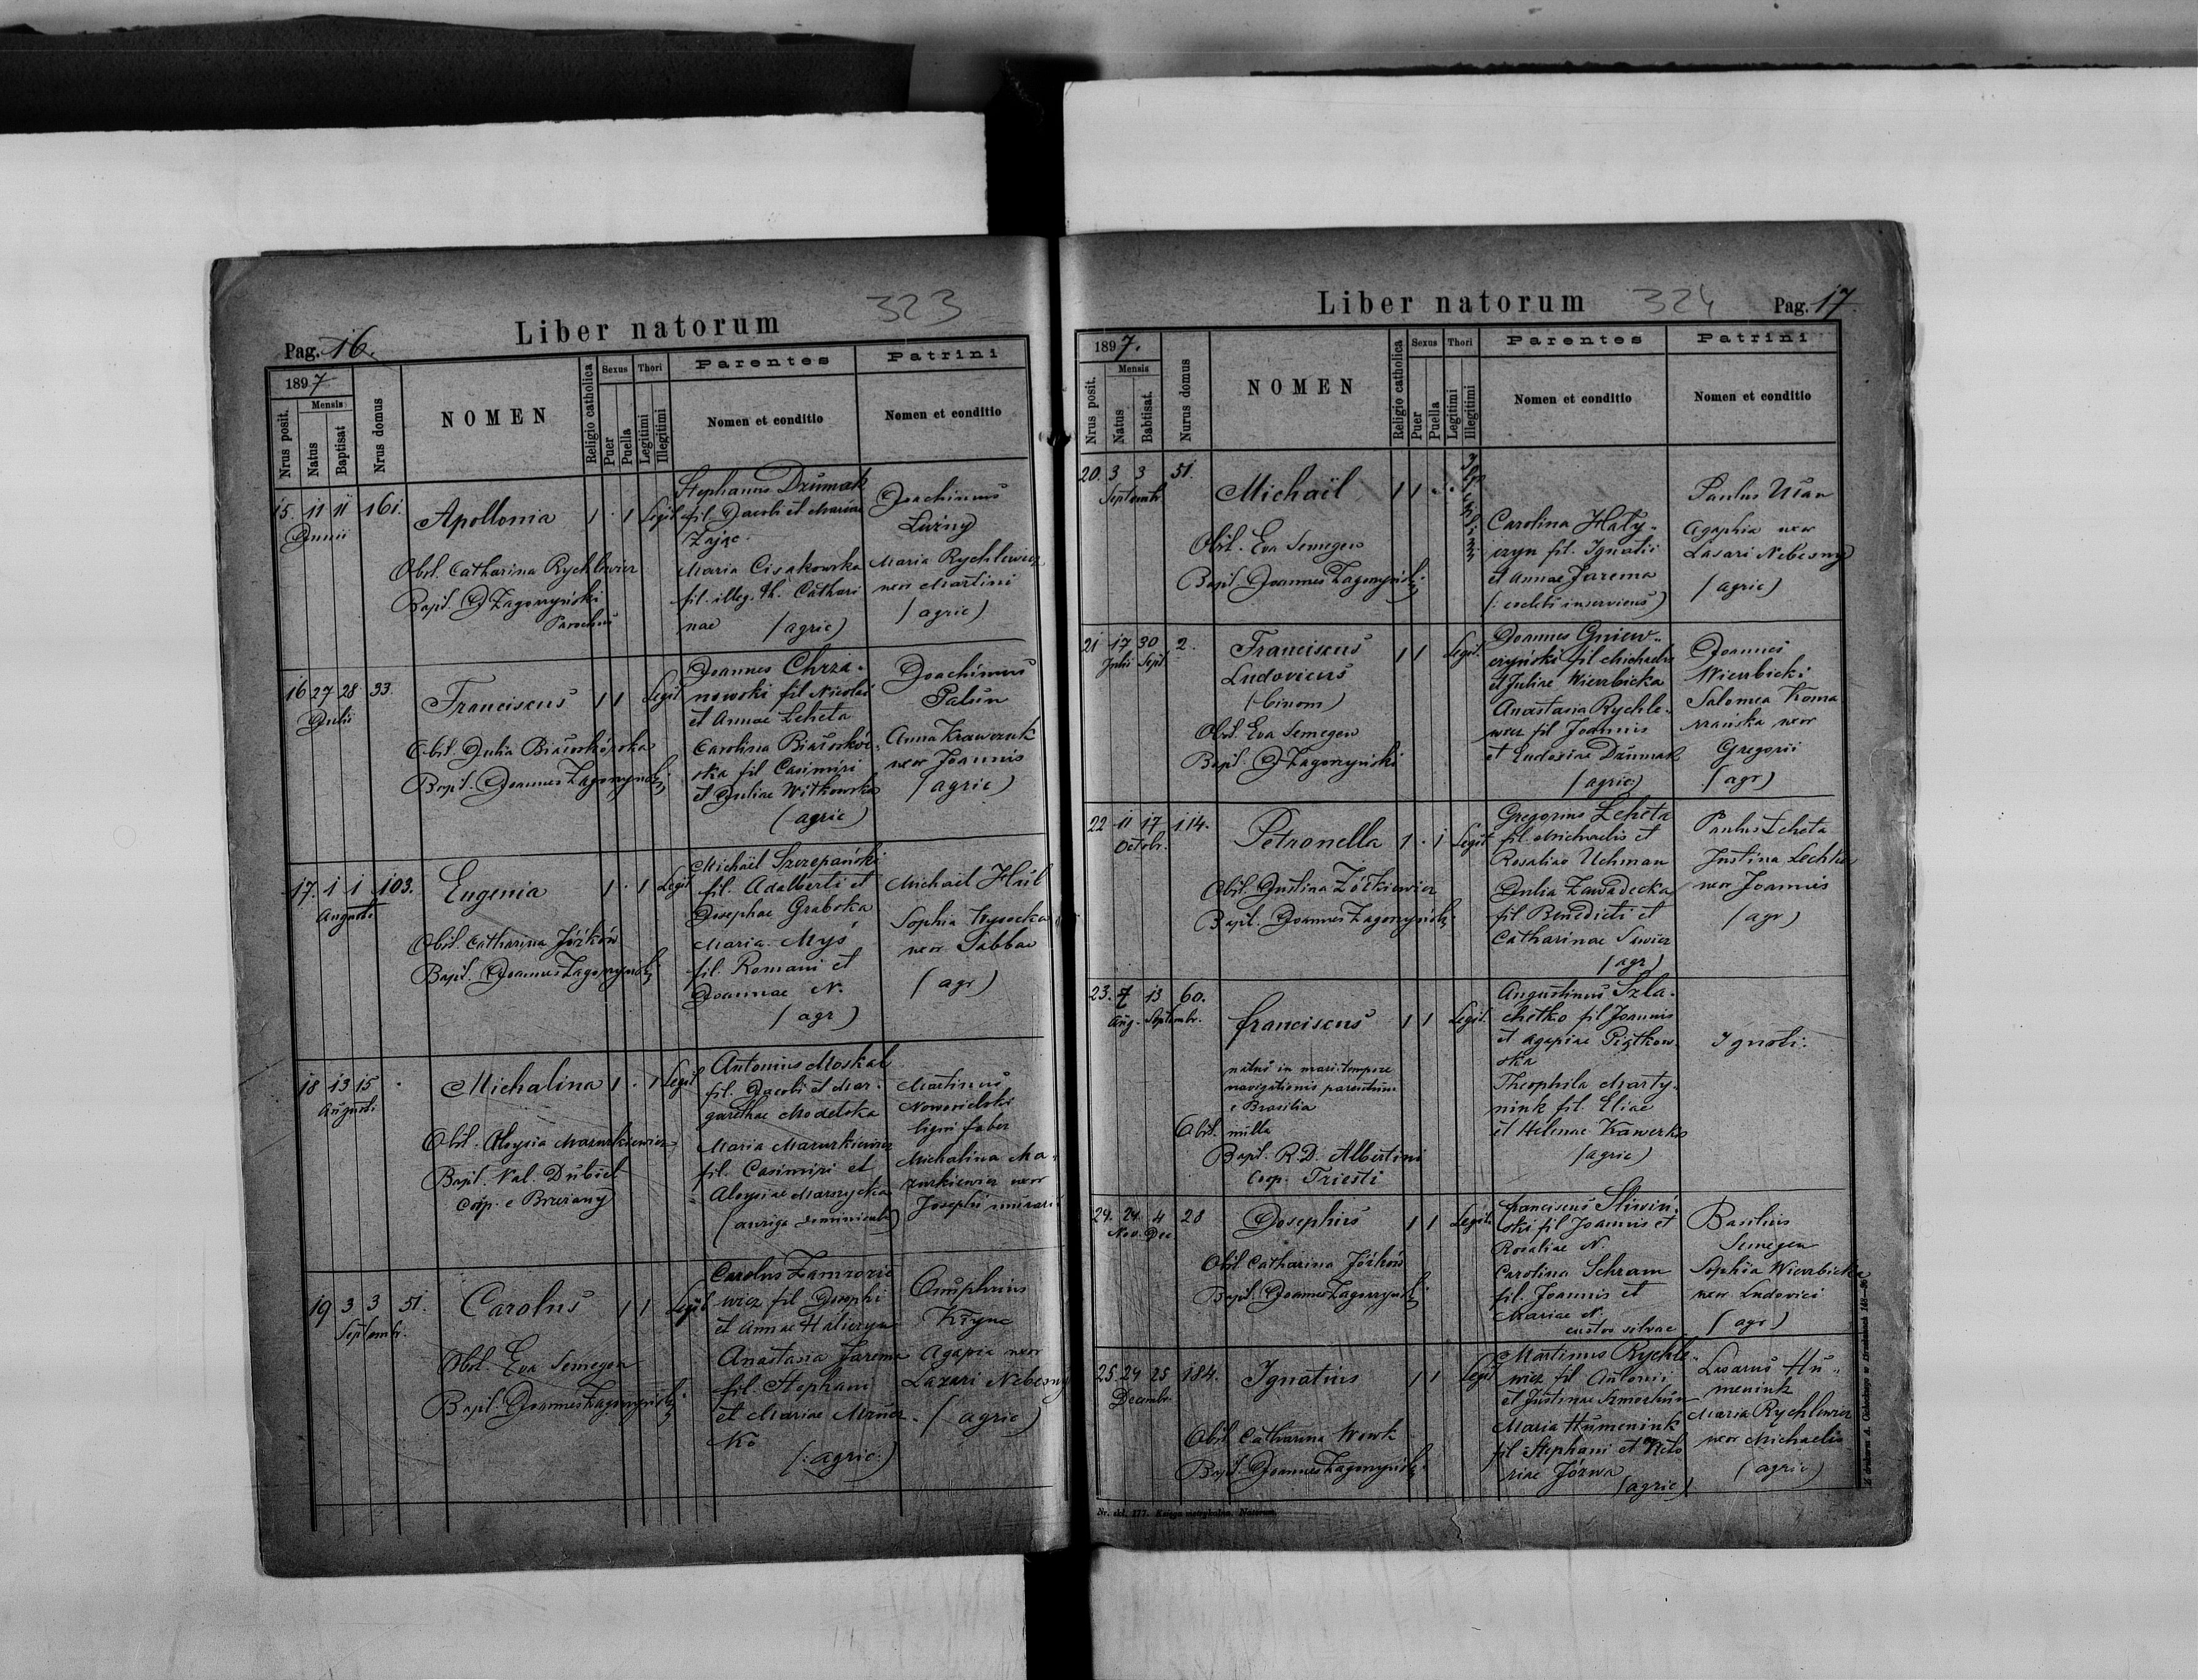 323
Liber natorum
Pag. 16.
1897
Nrus posit.
Mensis
Natus
Baptisat
Nrus domus
NOMEN
Religio catholica
Sexus
Puer
Puella
Thori
Legitimi
Illegitimi
Parentes
Nomen et conditio
Patrini
Nomen et conditio
15. 11 11 161.
Junii
Apollonia 1 . 1 Legit
Obst. Catharina Rychlewicz
Bapt. J Zagorzyński
Parochus
Stephanus Dziumak
fil. Jacobi et Mariae
Zając
Maria Cisakowska
fil. illeg. th. Cathari
nae (agric)
Joachimus
Luźny
Maria Rychlewicz
uxor Martini
(agric)
16 27 28 33.
Julii
Franciscus 1 1 Legit
Obst. Julia Białoskórska
Bapt. Joannes Zagorzyński
Joannes Chrza-
nowski fil Nicolai
et Annae Leheta
Carolina Białoskór-
ska fil Casimiri
et Juliae Witkowska
(agric)
Joachimus
Palun
Anna Krawczuk
uxor Joannis
(agric)
17. 1 1 103.
Augusti
Eugenia 1 . 1 Legit
Obst. Catharina Józków
Bapt. Joannes Zagorzyński
Michaël Szczepański
fil. Adalberti et
Josephae Grabska
Maria Myś
fil. Romani et
Joannae N.
(agr)
Michaël Hul
Sophia Wysocka
uxor Sabbae
(agr)
18 13 15 .
Augusti
Michalina 1 . 1 Legit
Obst. Aloysia Mazurkiewicz
Bapt. Val. Dubiel
Coop. e Brzeżany
Antonius Moskal
fil. Jacobi et Mar-
garethae Modelska
Maria Mazurkiewicz
fil. Casimiri et
Aloysiae Marzycka
(auriga dominicalis)
Martinus
Nowosielski
ligni faber
Michalina Ma-
zurkiewicz uxor
Josephi murarii
19 3 3 51.
Septembr.
Carolus 1 1 Legit
Obst. Eva Semegen
Bapt. Joannes Zagorzyński
Carolus Zamrozie
wicz fil Josephi
et Annae Haliczyn
Anastasia Jarema
fil. Stephani
et Mariae Mrucz-
ko
(:agric:)
Onuphrius
Kryne
Agapia uxor
Lazari Nebesny
(agric)
324
Liber natorum
Pag. 17.
1897.
Nrus posit.
Mensis
Natus
Babtisat.
Nurus domus
NOMEN
Religio catholica
Sexus
Puer
Puella
Thori
Legitimi
Illegitimi
Parentes
Nomen et conditio
Patrini
Nomen et conditio
20. 3 3 51.
Septembr
Michaël 1 1 . .
Obst. Eva Semegen
Bapt. Joannes Zagorzyński
Carolina Haly-
czyn fil. Ignatii
et Annae Jarema
Paulus Uśan
Agaphia uxor
Lasari Nebesny
(agric)
21 17 30 2.
Julii Sept
Franciscus 1 1 Legit.
Ludovicus
(binom)
Obst. Eva Semegen
Bapt. J Zagorzyński
Joannes Gniew-
czyński fil Michaelis
et Juliae Wierzbicka
Anastasia Rychle-
wicz fil Joannis
et Eudosiae Dziumak
(agric)
Joannes
Wierzbicki
Salomea Koma
rzańska uxor
Gregorii
(agr)
22 11 17 114.
Octobr.
Petronella 1 . 1 Legit
Obst. Justina Żółkiewicz
Bapt. Joannes Zagorzyński
Gregorius Leheta
fil. Michaelis et
Rosaliae Uchman
Julia Zawadecka
fil Benedicti et
Catharinae Sawicz
(agr)
Paulus Leheta
Justina Lechka
uxor Joannis
(agr)
23. 7 13 60.
Aug. Septembr.
Franciscus 1 1 Legit.
natus in mari tempore
navigationis parentum
e Brasilia
Obst. nulla
Bapt. R. D. Albertini
Coop. Triesti
Augustinus Szla-
chetko fil Joannis
et Agapiae Piątkow-
ska
Theophila Marty-
niuk fil. Eliae
et Helenae Kawerko
(agric)
Ignoti.
24. 24. 4 28
Nov. Dec.
Josephus 1 1 Legit.
Obst Catharina Józków
Bapt. Joannes Zagorzyński
Franciscus Sliwiń-
ski fil Joannis et
Rosaliae N.
Carolina Schram
fil. Joannis et
Mariae N.
custos silvae
Basilius
Semegen
Sophia Wierzbicka
uxor Ludovici
(agr)
25 24 25 184.
Decembr.
Ignatius 1 1 Legit
Obst Catharina Wowk
Bapt. Joannes Zagorzyński
Martinus Rychle-
wicz fil Antonii
et Justinae
Maria Humeniuk
fil Stephani et Victo
riae Józwa
(agric)
Lasarus Hu-
meniuk
Maria Rychlewicz
uxor Michaelis
(agric)
Nr. skl. 177. Księga metrykalna. Natorum.